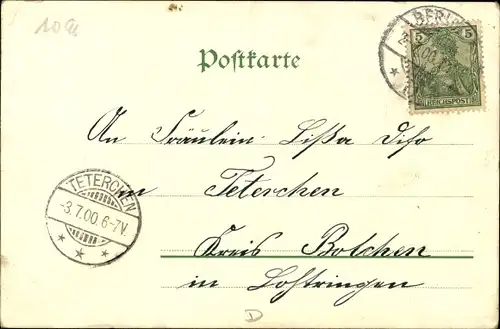 BERLIN
5 5
REICHSPOST
Postkarte
An Fräulein Lißa
in Teterchen
TETERCHEN
-3.7.00.6-7V.
Kreis Bolchen
in Lothringen
D